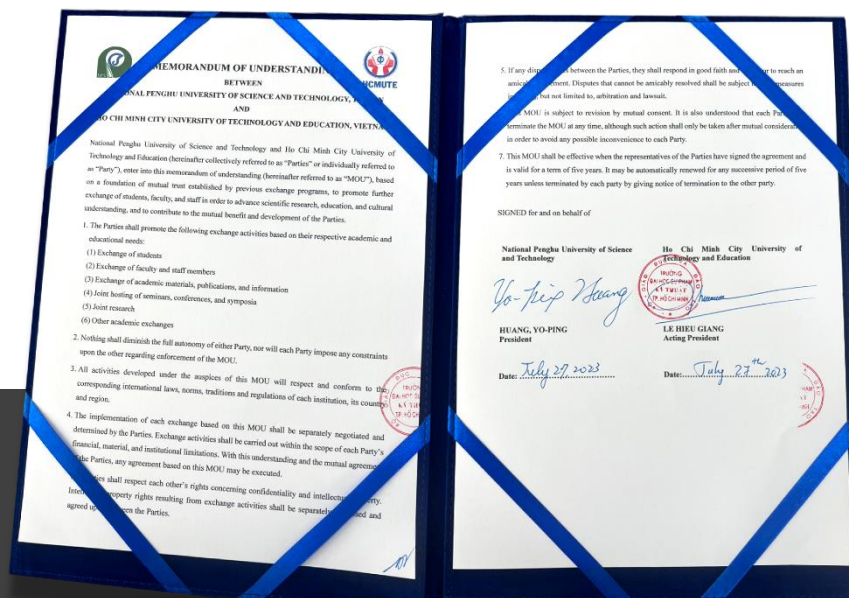 MEMORANDUM OF UNDERSTANDING
HCMUTE
BETWEEN
PENGHU UNIVERSITY OF SCIENCE AND TECHNOLOGY,
AND
HO CHI MINH CITY UNIVERSITY OF TECHNOLOGY AND EDUCATION,
National Penghu University of Science and Technology and Ho Chi Minh City University of
Technology and Education (hereinafter collectively referred to as “Parties” or individually referred to
as “Party”), enter into this memorandum of understanding (hereinafter referred to as “MOU”), based
on a foundation of mutual trust established by previous exchange programs, to promote further
exchange of students, faculty, and staff in order to advance scientific research, education, and cultural
understanding, and to contribute to the mutual benefit and development of the Parties.
1. The Parties shall promote the following exchange activities based on their respective academic and
educational needs:
(1) Exchange of students
(2) Exchange of faculty and staff members
(3) Exchange of academic materials, publications, and information
(4) Joint hosting of seminars, conferences, and symposia
(5) Joint research
(6) Other academic exchanges
2. Nothing shall diminish the full autonomy of either Party, nor will each Party impose any constraints
upon the other regarding enforcement of the MOU.
3. All activities developed under the auspices of this MOU will respect and conform to the
corresponding international laws, norms, traditions and regulations of each institution, its country
and region.
4. The implementation of each exchange based on this MOU shall be separately negotiated and
determined by the Parties. Exchange activities shall be carried out within the scope of each Party’s
financial, material, and institutional limitations. With this understanding and the mutual
the Parties, any agreement based on this MOU may be executed.
shall respect each other’s rights concerning confidentiality and
property rights resulting from exchange activities shall be separately and
agreed the Parties.
5. If any between the Parties, they shall respond in good faith and to reach an
Disputes that cannot be amicably resolved shall be subject measures
but not limited to, arbitration and lawsuit.
MOU is subject to revision by mutual consent. It is also understood that each
terminate the MOU at any time, although such action shall only be taken after mutual
in order to avoid any possible inconvenience to each Party.
7. This MOU shall be effective when the representatives of the Parties have signed the agreement and
is valid for a term of five years. It may be automatically renewed for any successive period of five
years unless terminated by each party by giving notice of termination to the other party.
SIGNED for and on behalf of
National Penghu University of Science
and Technology
Ho Chi Minh City University of
Technology and Education
TRƯỜNG
ĐẠI HỌC SƯ PHẠM
KỸ THUẬT
TP. HỒ CHÍ MINH
Yo-Ping Huang
HUANG, YO-PING
President
LE HIEU GIANG
Acting President
Date: July 27 2023
Date: July 27th 2023